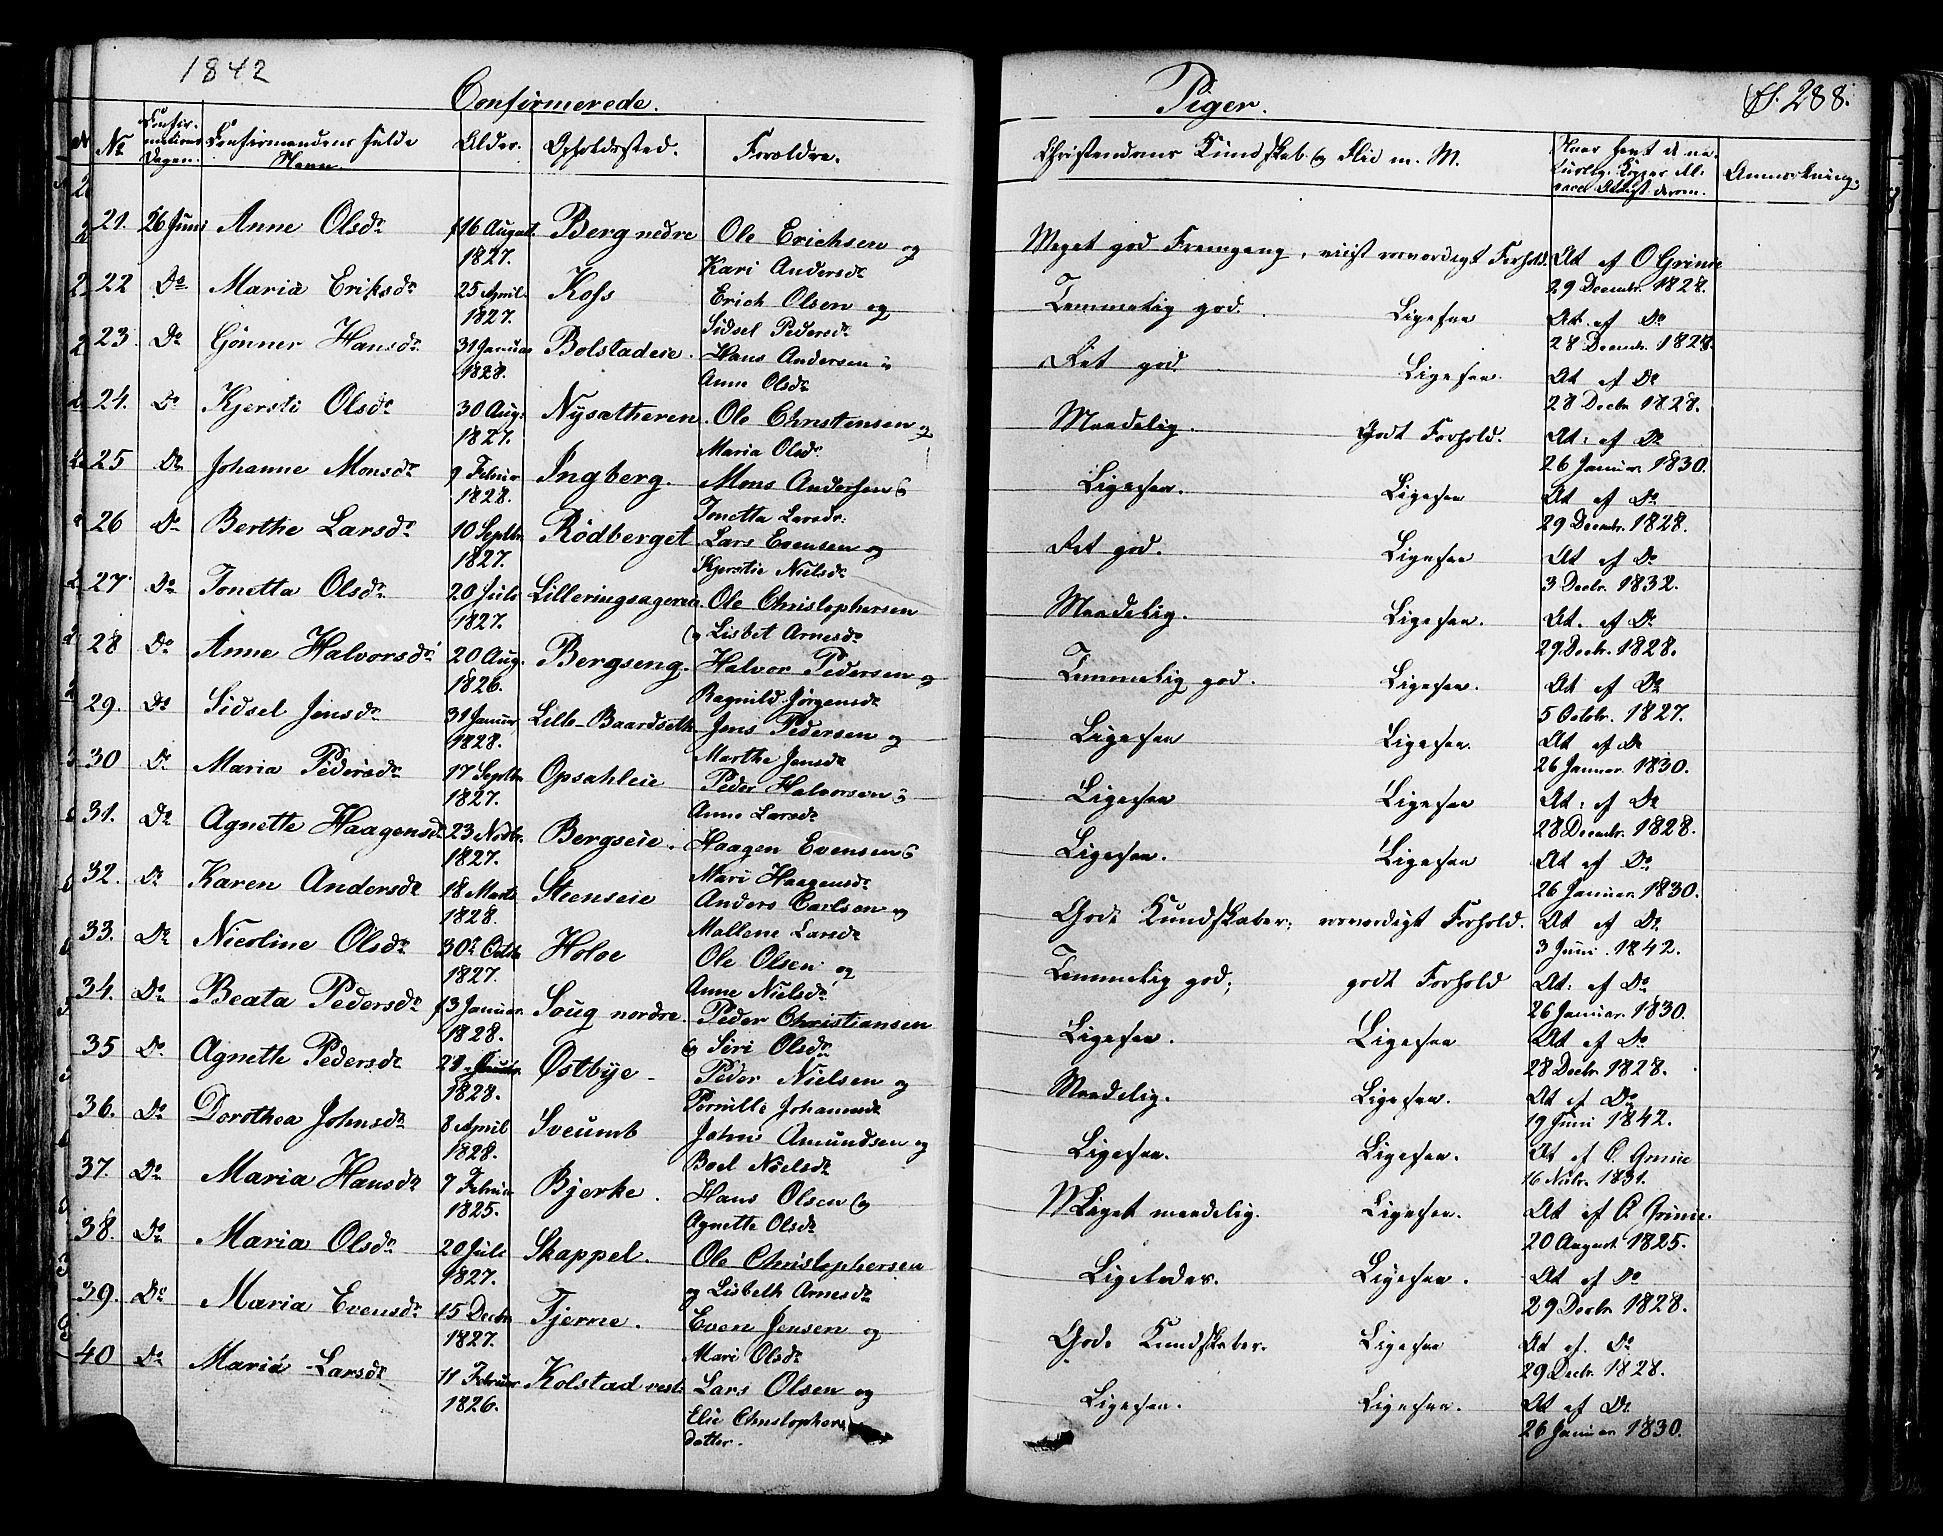 1842
Confirmerede.
Piger.
288.
No
Confirmations Dagen.
Confirmandens fulde Navn.
Alder.
Opholdssted.
Forældre.
Christendoms Kundskab og Flid m. M.
Anmærkning.
21. 26 Juni Anne Olsdr 16 August 1827. Berg nedre Ole Erichsen og Kari Andersdr Meget god Fremgang, At af O Grinie 29 Decembr. 1828.
22 Do Maria Eriksdr 25 April 1827. Koss Erich Olsen og Sidsel Pedersdr Temmelig god. Ligesaa At af Do 28 Decembr. 1828.
23. Do Gönner Hansdr 31 Januar 1828. Bolstadeie. Hans Andersen Anne Olsdr Ret god Ligesaa. At af Do 28 Decbr 1828.
24. Do Kjersti Olsdr 30 Aug. 1827. Nysætheren. Ole Christensen og Maria Olsdr Maadelig. Godt Forhold. At af Do 26 Januar 1830.
25 Do Johanne Monsdr 9 Februar 1828. Ingberg. Mons Andersen Tonetta Larsdr. Ligesaa. Ligesaa At af Do 29 Decembr. 1828.
26 Do Berthe Larsdr 10 Septbr 1827. Rödberget Lars Evensen og Kjerstie Nielsdr Ret god. Ligesaa At af Do 3 Decbr. 1832.
27 Do Tonetta Olsdr 20 Juli 1827. Lilleringsageren Ole Christophersen og Lisbet Arnesdr Maadelig. Ligesaa. At. af Do 29 Decbr. 1828.
28 Do Anne Halvorsdr 20 Aug. 1826. Bergseng. Halvor Pedersen og Ragnild Jörgensdr Temmelig god. Ligesaa. At af Do 5 Octobr. 1827.
29. Do Sidsel Jensdr 31 Januar 1828. Lille-Baardseth Jens Pedersen og Marthe Jensdr Ligesaa Ligesaa. At af Do 26 Januar. 1830.
30 Do Maria Pedersdr 17 Septbr 1827. Opsahleie Peder Halvorsen Anne Larsdr Ligesaa Ligesaa At af Do 28 Decembr. 1828.
31. Do Agnette Haagensdr 23 Novbr. 1827. Bergseie. Haagen Evensen Mari Haagensdr Ligesaa. Ligesaa At af Do 26 Januar 1830.
32. Do Karen Andersdr 18 Marts 1828. Steenseie Anders Carlsen og Mallene Larsdr Gode Kundskaber; Forhold. At af Do 3 Juni. 1842.
33. Do Nicoline Olsdr 30 Octbr 1827. Holoe Ole Olsen og Anne Nielsdr Temmelig god; godt Forhold At af Do 26 Januar. 1830.
34. Do Beata Pedersdr 13 Januar. 1828. Soug nordre. Peder Christiansen og Siri Olsdr Ligesaa. Ligesaa At af Do 28 Decbr. 1828.
35 Do Agnette Pedersdr 1828. Østbye Peder Nielsen og Pernille Johannesdr Maadelig. Ligesaa. At af Do 19 Juni 1842.
36. Do Dorothea Johnsdr 8 April 1828. Sveumb John Amundsen og Boel Nielsdr Ligesaa. Ligesaa. At af O. Grinie 16 Novbr. 1831.
37. Do Maria Hansdr 7 Februar 1825. Bjerke. Hans Olsen og Agnette Olsdr Meget maadelig. Ligesaa. At af O Grinie. 20 August 1825.
38. Do Maria Olsdr 20 Juli 1827. Skappel. Ole Christophersen og Lisbeth Arnesdr Ligeledes. Ligesaa. At af Do 29 Decbr 1828.
39. Do Maria Evensdr 15 Decbr 1827. Tjerne. Even Jensen og Mari Olsdr Gode Kundskaber. Ligesaa At af. Do 29 Decbr. 1828.
40 Do Maria Larsdr 11 Februar 1826. Kolstad vest. Lars Olsen og Elie Christophersdatter. Ligesaa. Ligesaa. At af Do 26 Januar 1830.